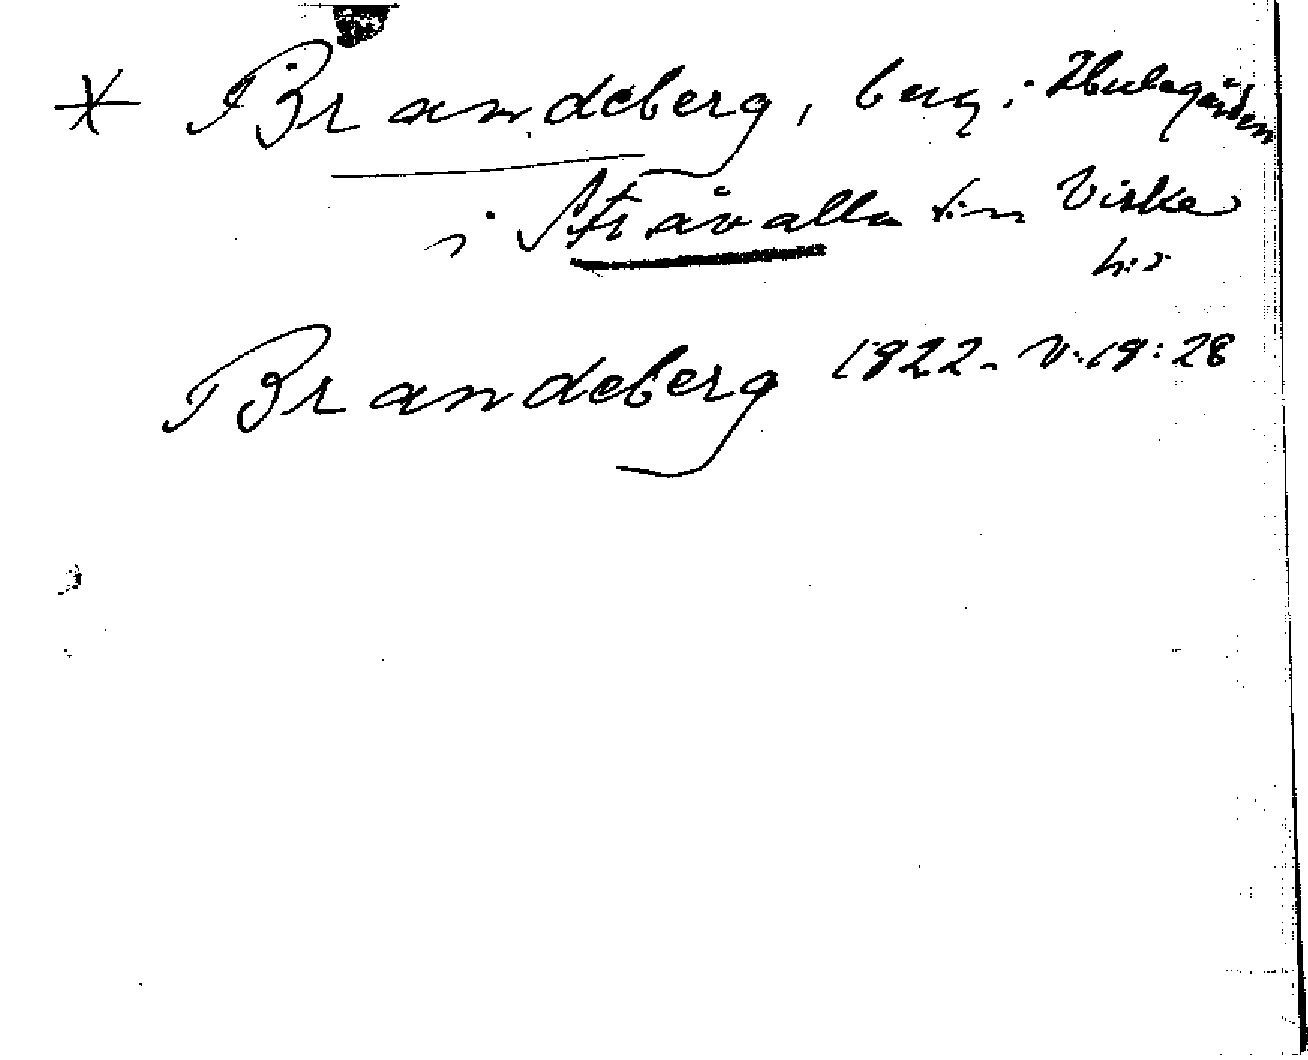 * Brandeberg, berg i
i Stråvalla sn Viske
hd
Brandeberg 1922. V. 19: 28